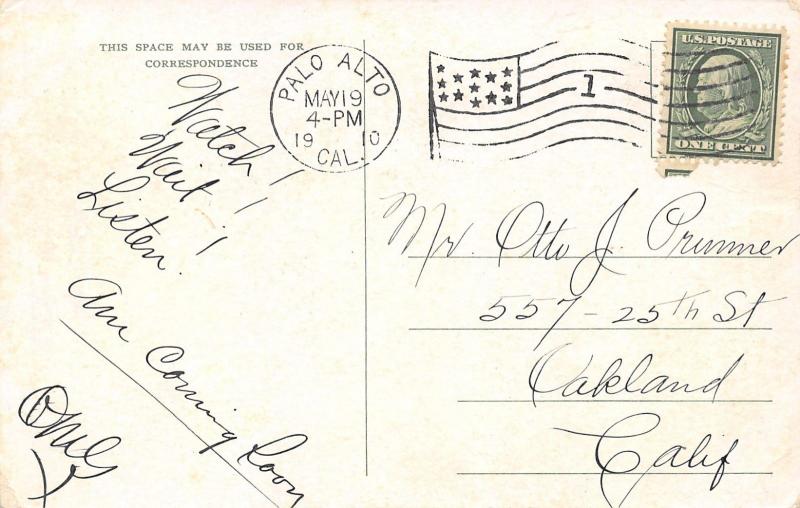 THIS SPACE MAY BE USED FOR
CORRESPONDENCE
Watch!
Wait!
Listen!
Am Coming Soon
OMG
PALO ALTO
MAY 19
4-PM
1910
CAL.
1
U.S. POSTAGE
ONE CENT
Mr. Otto J. Prummer
557-25th St
Oakland
Calif